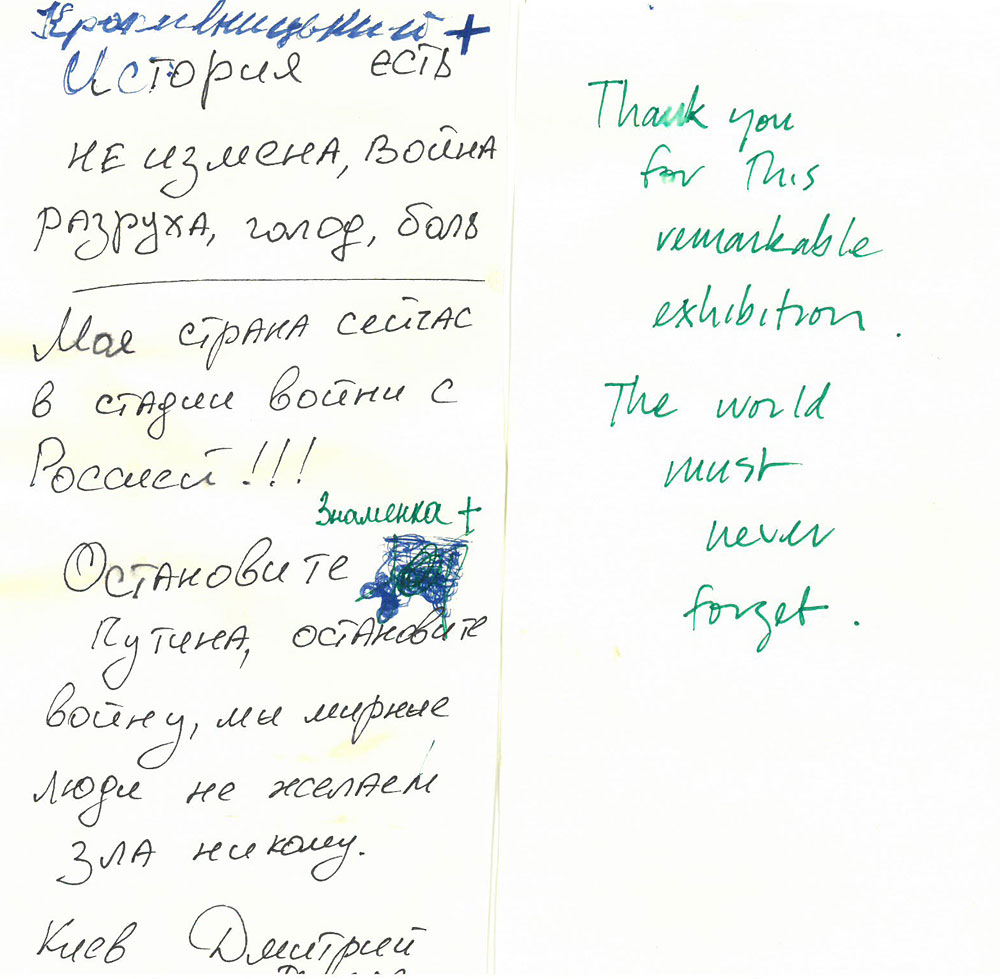 Кропивницький +
История есть
не измена, война
разруха, голод, боль
Мая страна сейчас
в стадии войни с
Россией!!!
Знаменка +
Остановите
Путина, остановите
войну, мы мирные
люди не желаем
зла никому.
Киев Дмитрий
Thank you
for This
remarkable
exhibition.
The world
must
never
forget.